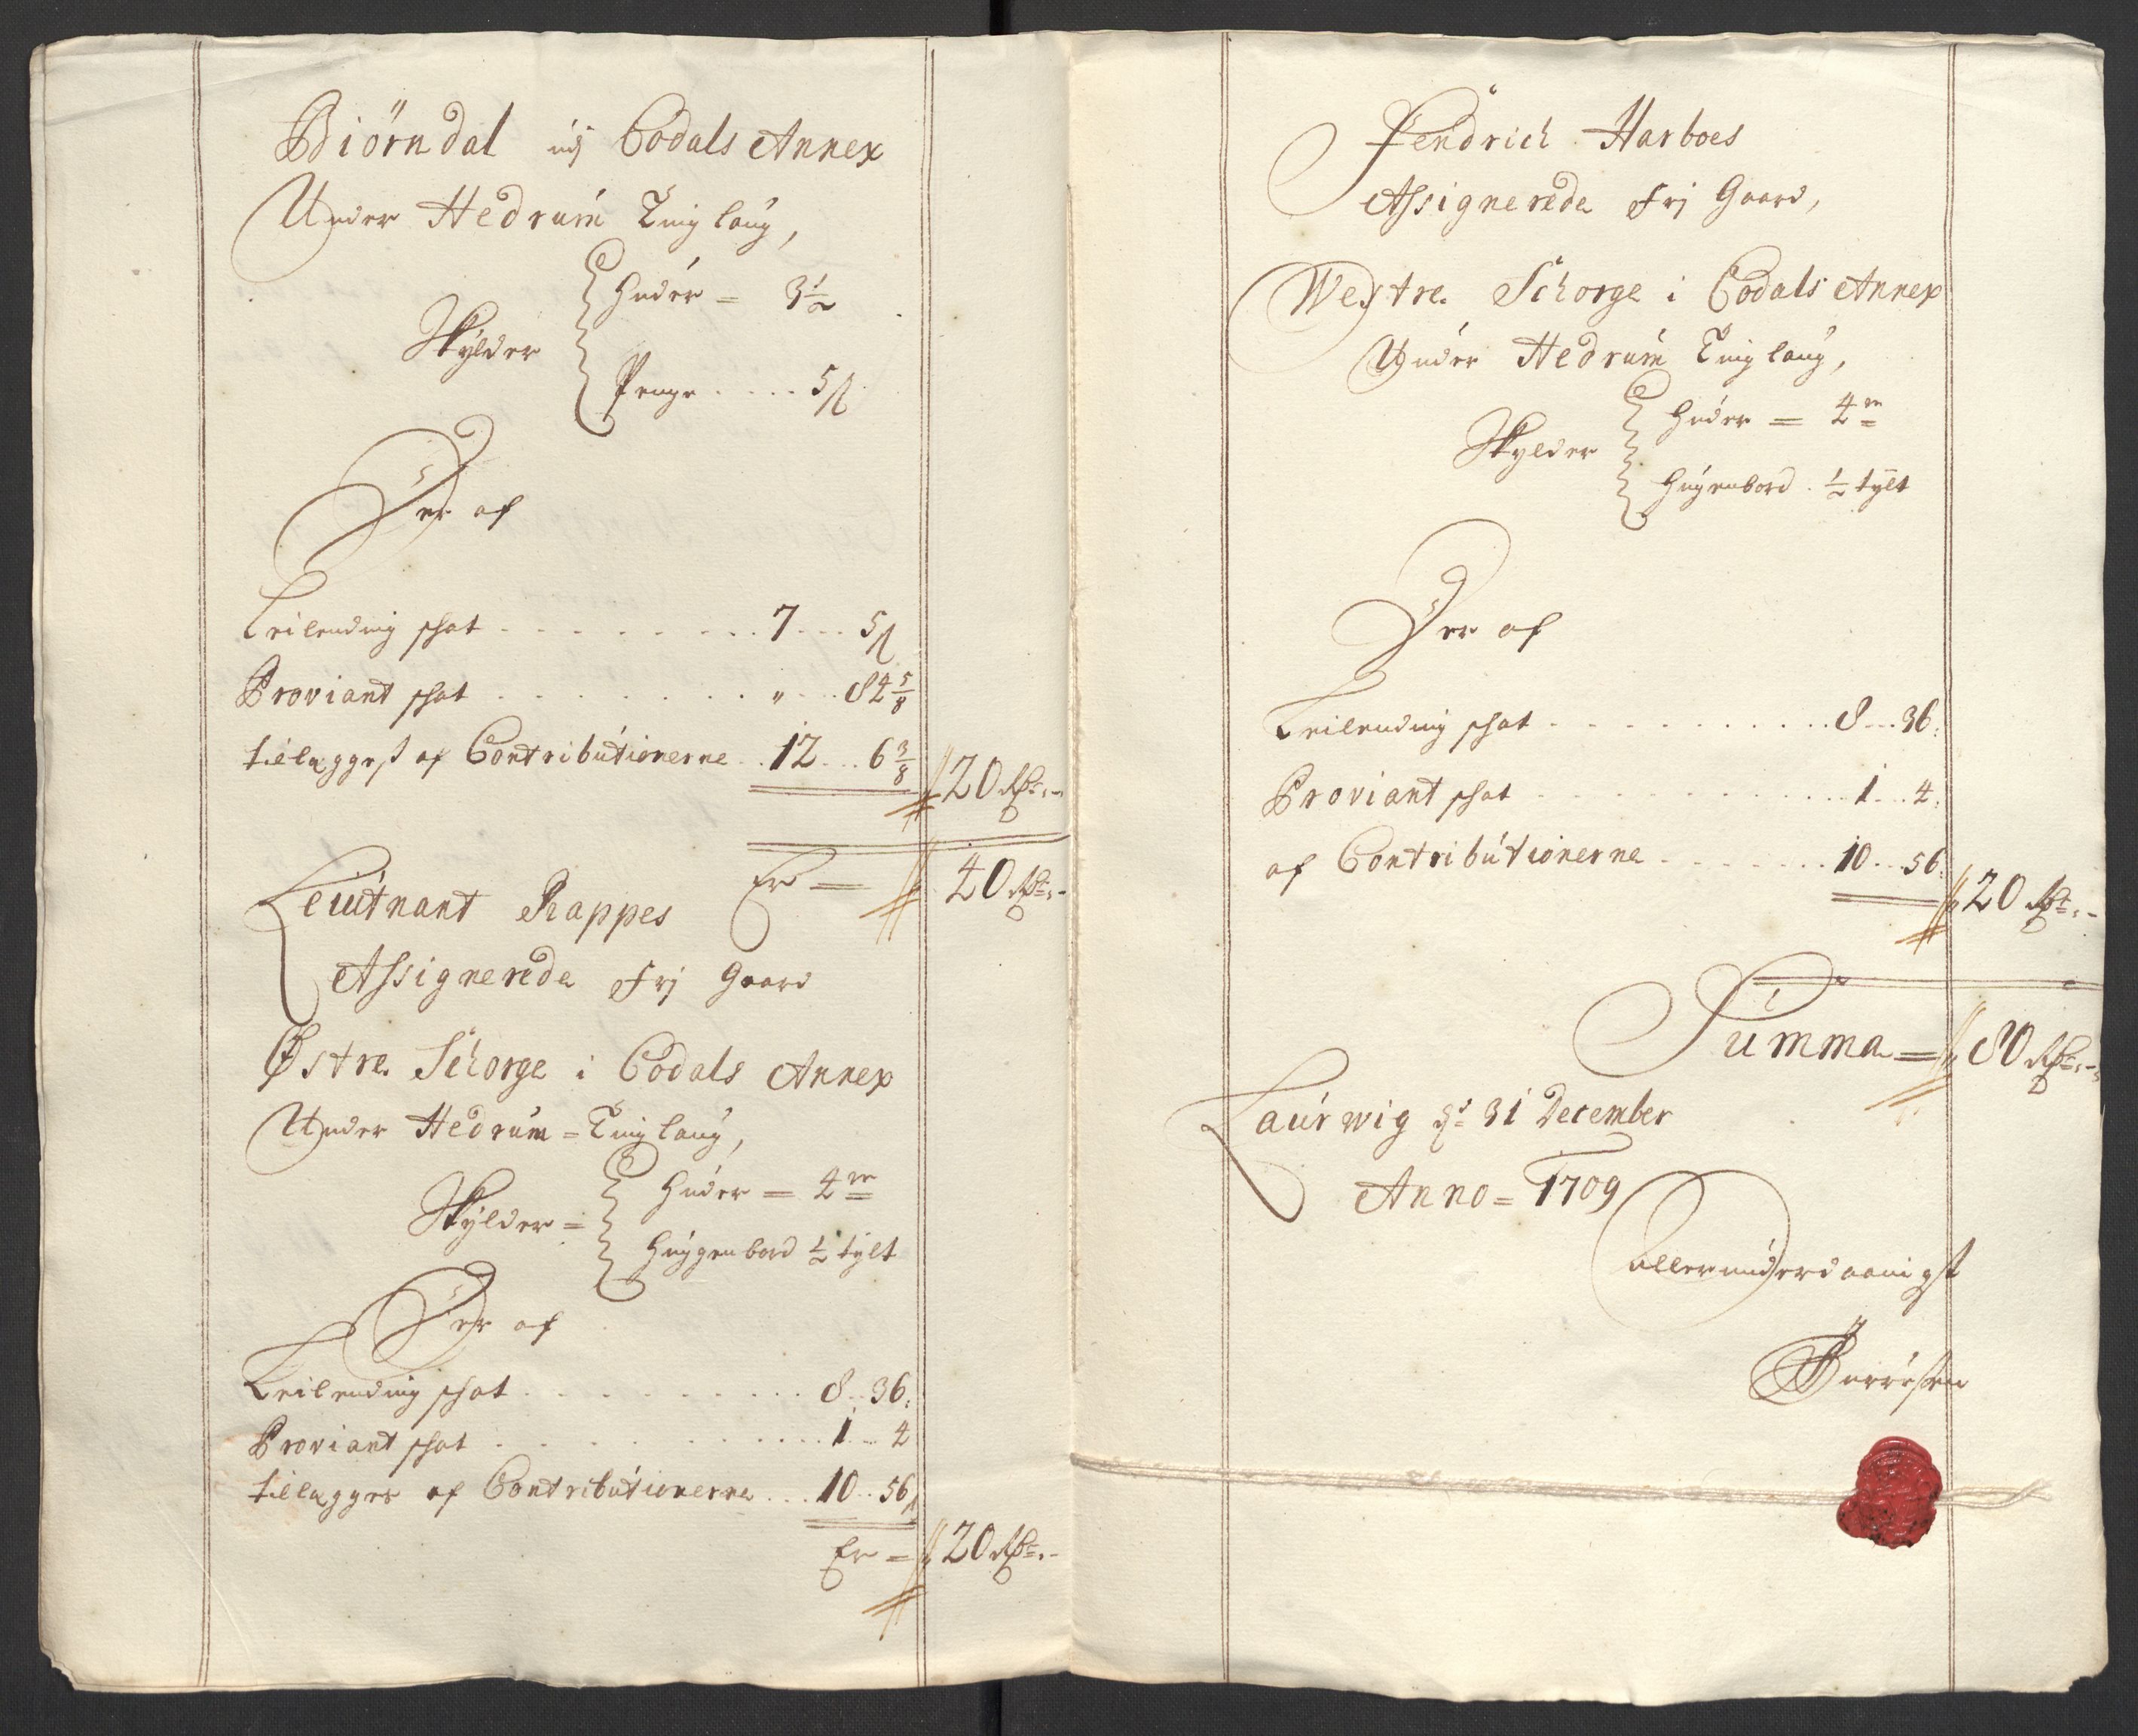 Biörndal udj Codals Annex
Under Hedrum Tinglaug,
Skylder
Huder = 3½
Penge .... 5 s
Der af
Leilending schat . . . 7 . . . 5 s
Proviant schat . . . " . . . 84 5/8
tillegges af Contributionerne . . 12 . . . 6 3/8
20 Rdr. -
Er = 40 Rdr. -
Leiutnant Rappes
Assignerede Frj Gaard
Østre Schorge i Codals Annex
Under Hedrum = Tinglaug,
Skylder =
Huder = 4re
Huggenbord ½ tylt
Der af
Leilending schat . . . 8 . . 36:
Proviant schat . . . 1 . . . 4
tillegges af Contributionerne . . . 10 . . 56 s
Er = 20 Rdr. -
Fendrich Harboes
Assignerede Frj Gaard,
Westre Schorge i Codals Annex
Under Hedrum Tinglaug,
Skylder
Huder = 4re
Hugenbord . ½ tylt
Der af
Leilending schat . . . 8 . . . 36:
Proviant schat . . . 1 . . . 4:
af Contributionerne . . . 10 . . 56:
20 Rdr. -
Summa = 80 Rdr. -
Laurwig dt 31 December
Anno = 1709
allerunderdaanigst